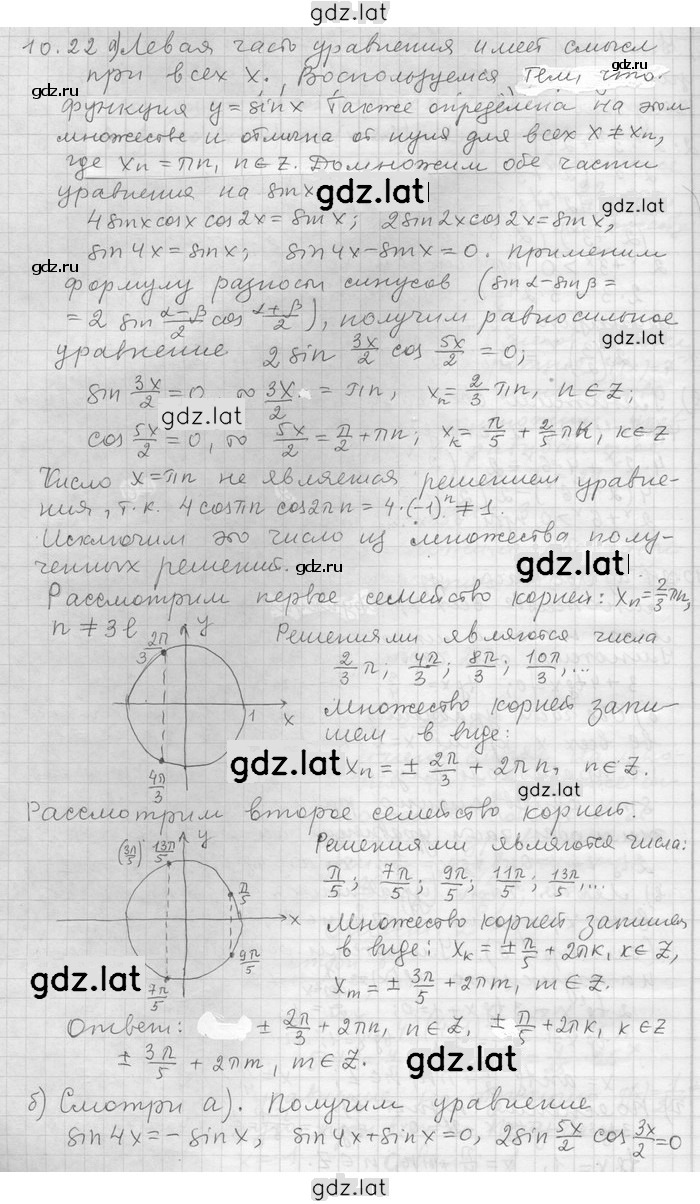 gdz.lat
10.22 а) Левая часть уравнения имеет смысл
при всех x. Воспользуемся тем, что
функция y = sin x также определена на этом
множестве и отлична от нуля для всех x ≠ xₙ,
где xₙ = πn, n ∈ Z. Домножим обе части
уравнения на sin x
4 sin x cos x cos 2x = sin x; 2 sin 2x cos 2x = sin x,
sin 4x = sin x; sin 4x - sin x = 0. Применим
формулу разности синусов (sin α - sin β =
= 2 sin (α-β)/2 cos (α+β)/2), получим равносильное
уравнение 2 sin 3x/2 cos 5x/2 = 0;
sin 3x/2 = 0 ∞ 3x/2 = πn, xₙ = 2/3 πn, n ∈ Z;
cos 5x/2 = 0, ∞ 5x/2 = π/2 + πn; xₖ = π/5 + 2/5 πk, k ∈ Z
Число x = πn не является решением уравне-
ния, т.к. 4 cos πn cos 2πn = 4·(-1)ⁿ ≠ 1.
Исключим это число из множества полу-
ченных решений.
Рассмотрим первое семейство корней: xₙ = 2/3 πn,
n ≠ 3l
2π/3 y x 1 4π/3
Решениями являются числа
2/3 π; 4π/3; 8π/3; 10π/3, ...
Множество корней запи-
шем в виде:
xₙ = ± 2π/3 + 2πn, n ∈ Z.
Рассмотрим второе семейство корней.
(3π/5) 13π/5 y π/5 x 9π/5 7π/5
Решениями являются числа:
π/5; 7π/5; 9π/5; 11π/5, 13π/5, ...
Множество корней запишем
в виде: xₖ = ± π/5 + 2πk, k ∈ Z,
xₘ = ± 3π/5 + 2πm, m ∈ Z.
Ответ: ± 2π/3 + 2πn, n ∈ Z, ± π/5 + 2πk, k ∈ Z
± 3π/5 + 2πm, m ∈ Z.
б) Смотри а). Получим уравнение
sin 4x = - sin x, sin 4x + sin x = 0, 2 sin 5x/2 cos 3x/2 = 0
gdz.lat